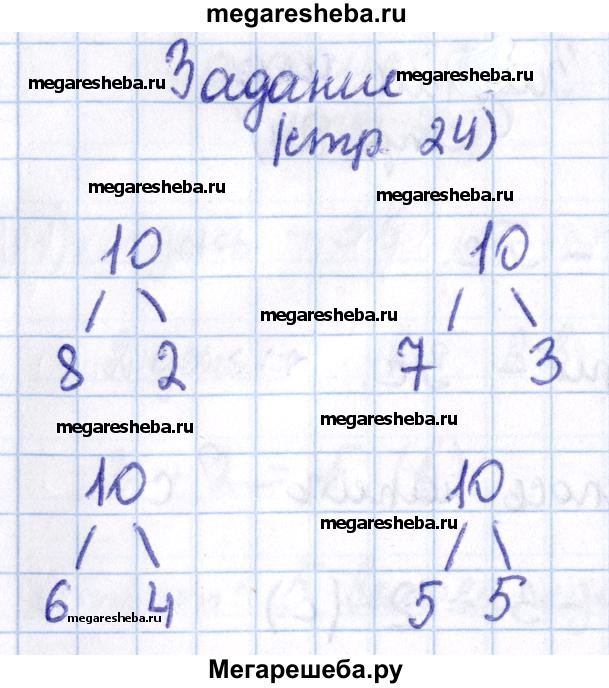 megaresheba.ru
Задание
megaresheba.ru megaresheba.ru
(стр 24)
megaresheba.ru megaresheba.ru
10 10
/ \ megaresheba.ru / \
8 2 7 3
megaresheba.ru megaresheba.ru
10 10
/ \ megaresheba.ru / \
6 4 5 5
megaresheba.ru
Мегарешеба.ру